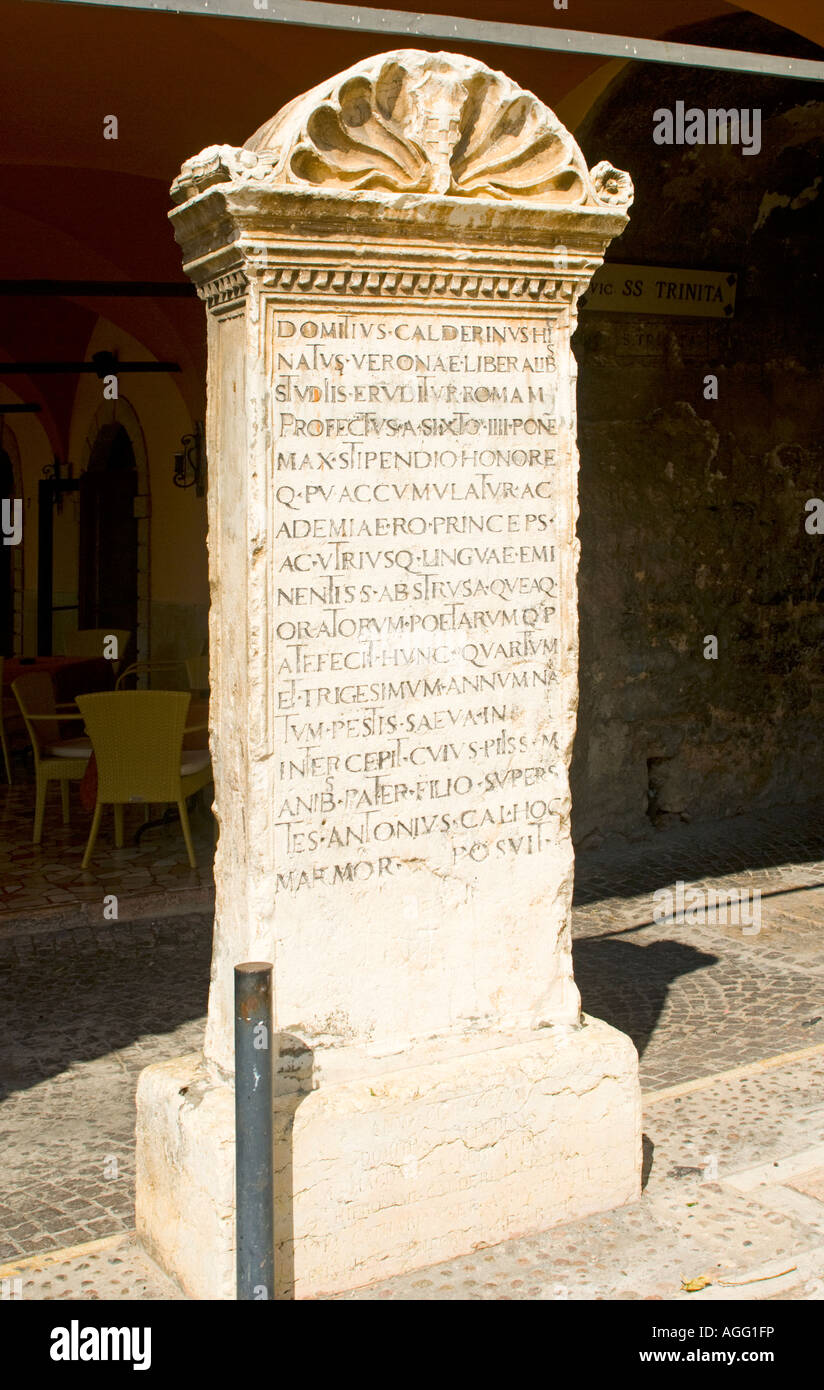 VIC. SS TRINITA
DOMITIVS·CALDERINVS·HIS
NATVS·VERONAE·LIBERALIB
STVDIIS·ERVDITVR·ROMAM
PROFECTVS·A·SIXTO·IIII·PONE
MAX·STIPENDIO·HONORE
Q·PV·ACCVMVLATVR·AC
ADEMIAE·RO·PRINCEPS·
AC·VTRIVSQ·LINGVAE·EMI
NENTISS·ABSTRVSA·QVEAQ
ORATORVM·POETARVMQ·P
ATEFECIT·HVNC·QVARTVM
ET·TRIGESIMVM·ANNVM·NA
TVM·PESTIS·SAEVA·IN
INTERCEPIT·CVIVS·PIISS·M
ANIBS·PATER·FILIO·SVPERS
TES·ANTONIVS·CAL·HOC
MARMOR· POSVIT·
alamy
Image ID: AGG1FP
www.alamy.com